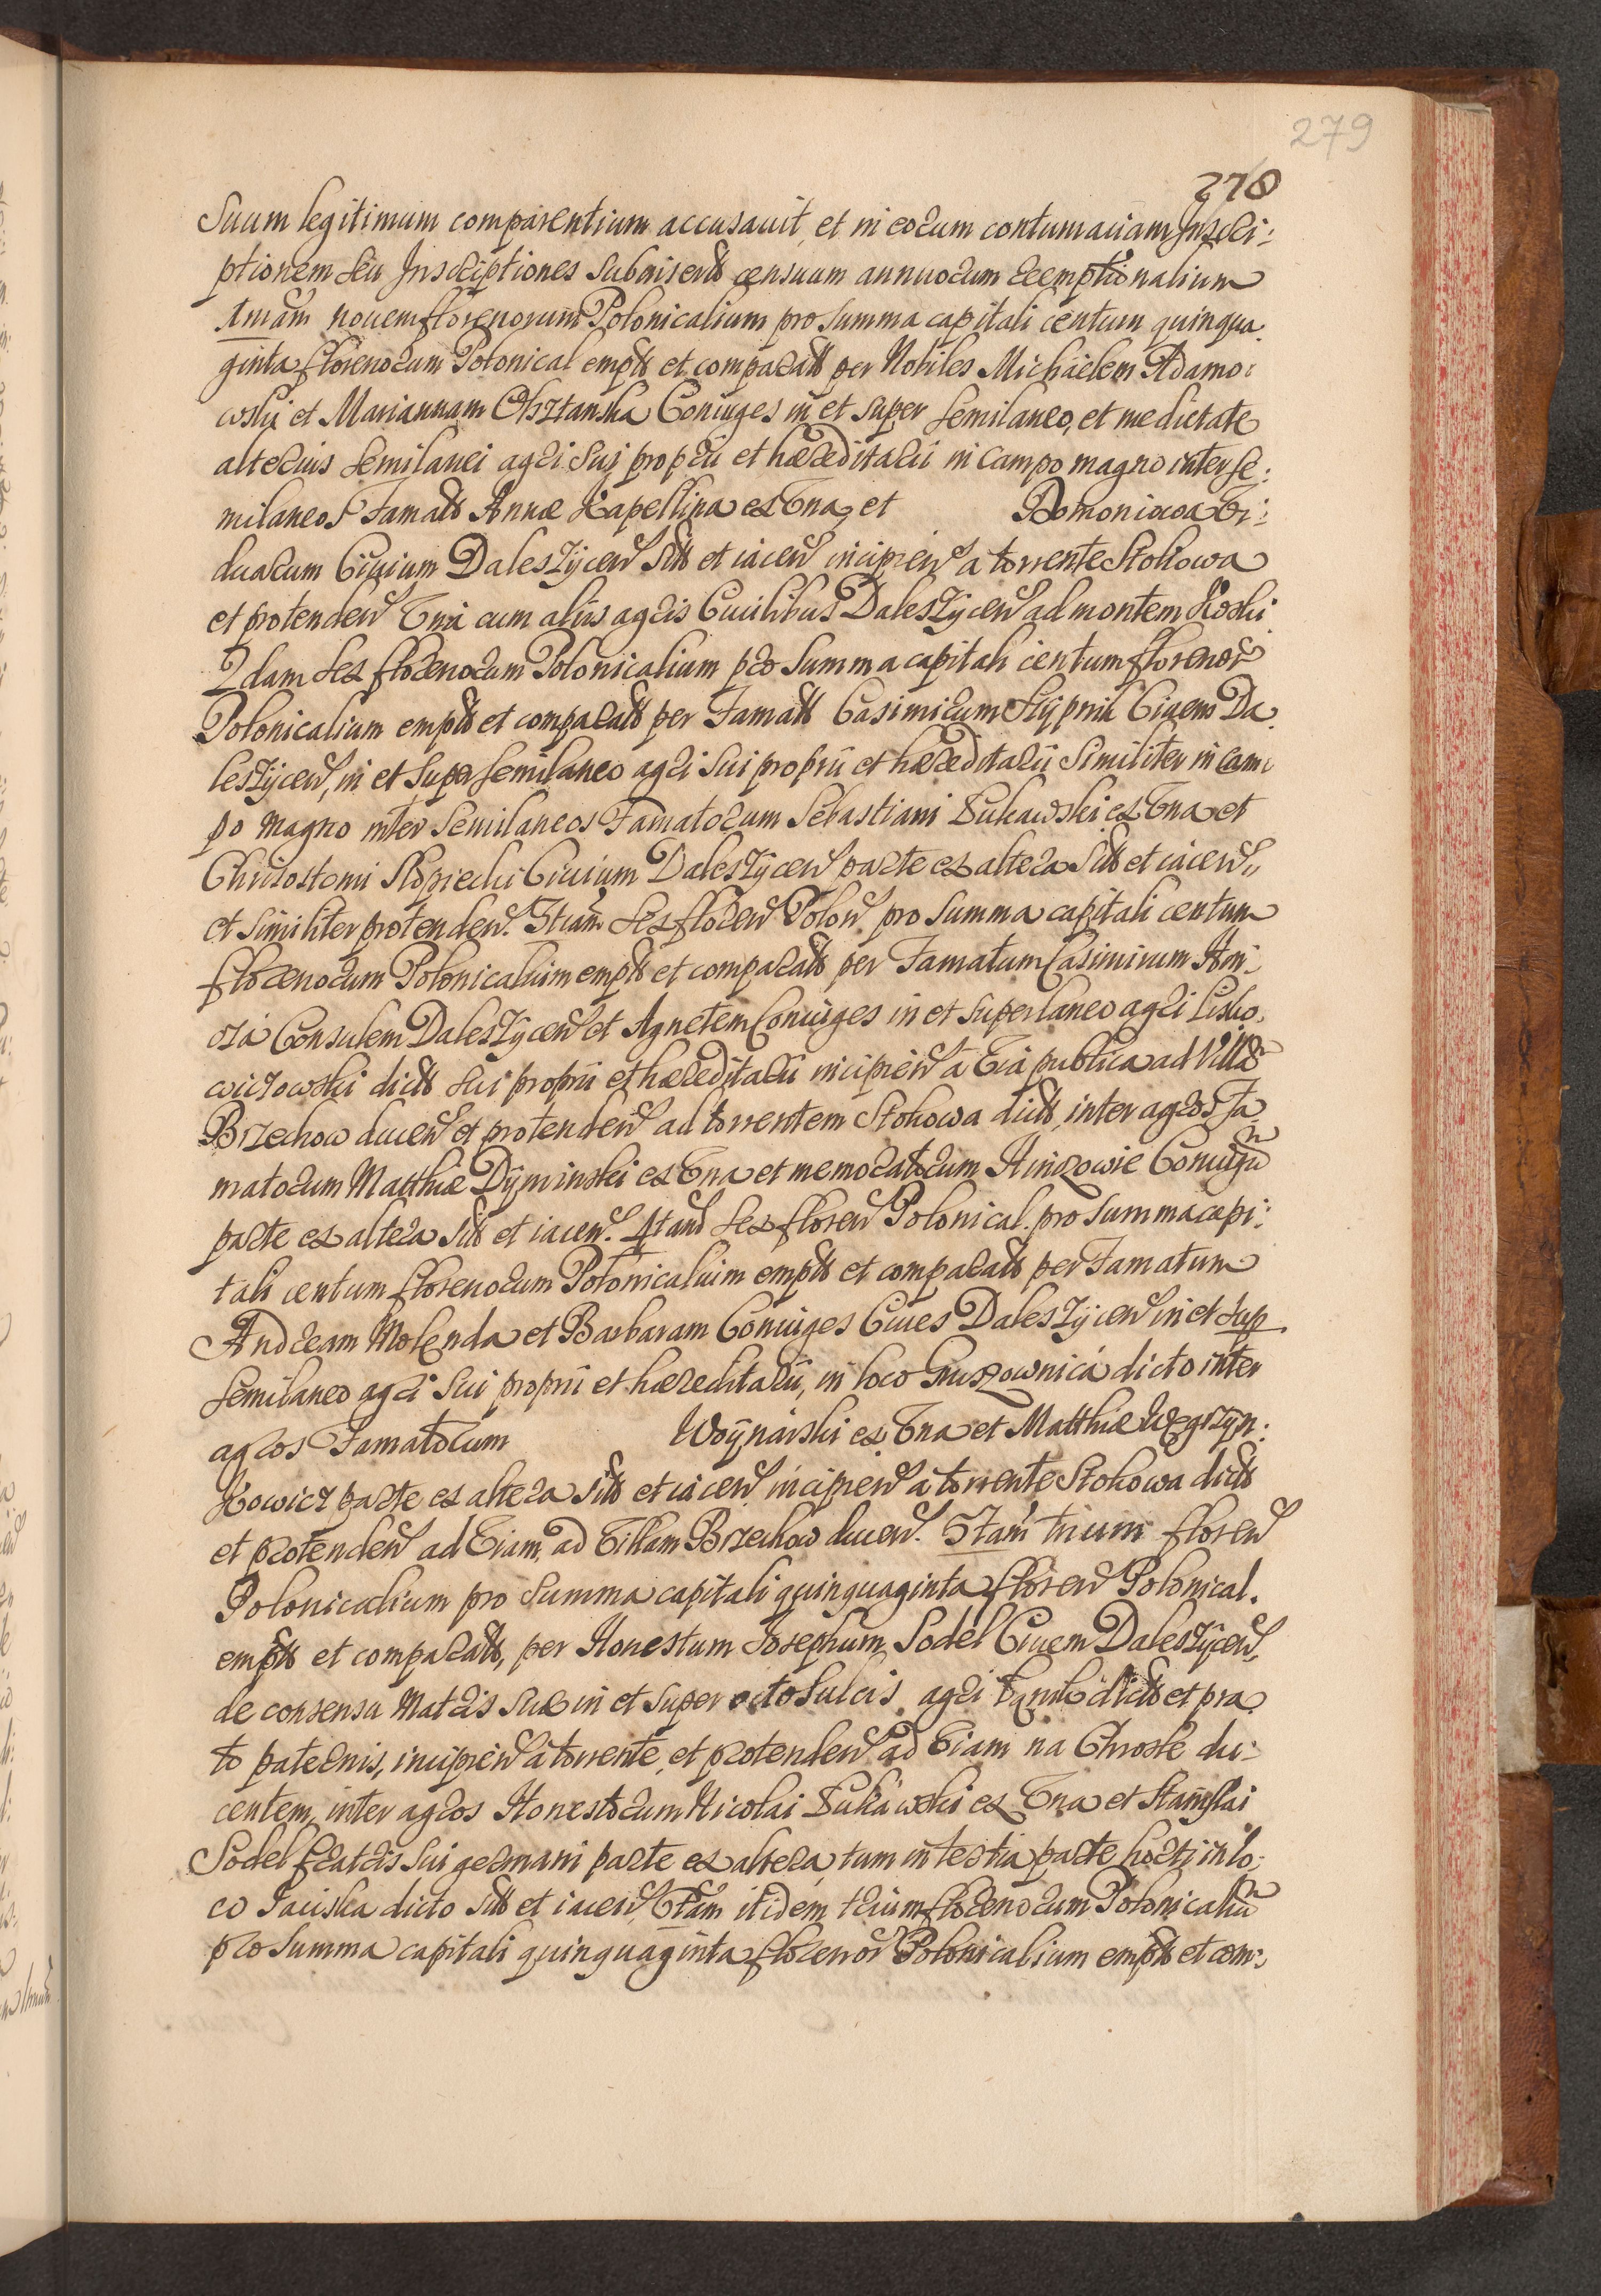 279
278
Suum legitimum comparentium accusavit, et in eorum contumaciam Inscri:
ptionem seu Inscriptiones submiserit censuum annuorum reemptionalium
1mam novem florenorum Polonicalium pro summa capitali centum quinqua
ginta florenorum Polonical empt et comparat per Nobiles Michaelem Adamo:
wski et Mariannam Olsztanska Coniuges in et super semilaneo, et medietate
alterius semilanei agri sui proprii et hæreditarii in campo magno inter se:
milaneos Famat Annæ Kapellina ex una, et Domoniowa Vi:
duarum Civium Daleszycen sit et iacen incipien a torrente Stokowa
et protenden Uni cum aliis agris Civilibus Daleszycen ad montem
2dam sex florenorum Polonicalium pro summa capitali centum florenor
Polonicalium empt et comparat per Famat Casimirum Civem Da
leszycen, in et super semilaneo agri sui proprii et hæreditarii similiter in cam:
po magno inter semilaneos Famatorum Sebastiani Lukawski ex una et
Chrisostomi Civium Daleszycen parte ex altera sit et iacen,,
et similiter protenden. 3tiam sex floren Polon pro summa capitali centum
florenorum Polonicalium empt et comparat per Famatum Casimirum
Consulem Daleszycen et Agnetem Coniuges in et super laneo agri Lisko,
wiczowski dict sui proprii et hæreditarii incipien a via publica ad Villa
Brzechow ducen et protenden ad torrentem Stokowa dict, inter agros Fa
matorum Matthiæ Dyminski ex una et memoratorum Coniugu
parte ex altera sit et iacen. 4tam sex floren Polonical. pro summa capi:
tali centum florenorum Polonicalium empt et comparat per Famatum
Andream Molenda et Barbaram Coniuges Cives Daleszycen in et sup
semilaneo agri sui proprii et hæreditarii, in loco dicto inter
agros Famatorum Woynarski ex una et Matthiæ Węgrzyn:
kowicz parte ex altera sit et iacen incipien a torrente Stokowa dict
et protenden ad viam, ad villam Brzechow ducen. 5tam trium floren
Polonicalium pro summa capitali quinquaginta floren Polonical.
empt et comparat, per Honestum Josephum Sodel Civem Daleszycen,
de consensu Matris suæ in et super octo sulcis agri dict et pra
to paternis, incipien a torrente, et protenden ad viam na Chroste du:
centem, inter agros Honestorum Nicolai Lukawski ex una et Stanislai
Sodel fratris sui germani parte ex altera, tum in tertia parte horti in lo:
co dicto sit et iacen, 6tam itidem trium florenorum Polonicaliu
pro summa capitali quinquaginta florenor Polonicalium empt et com: